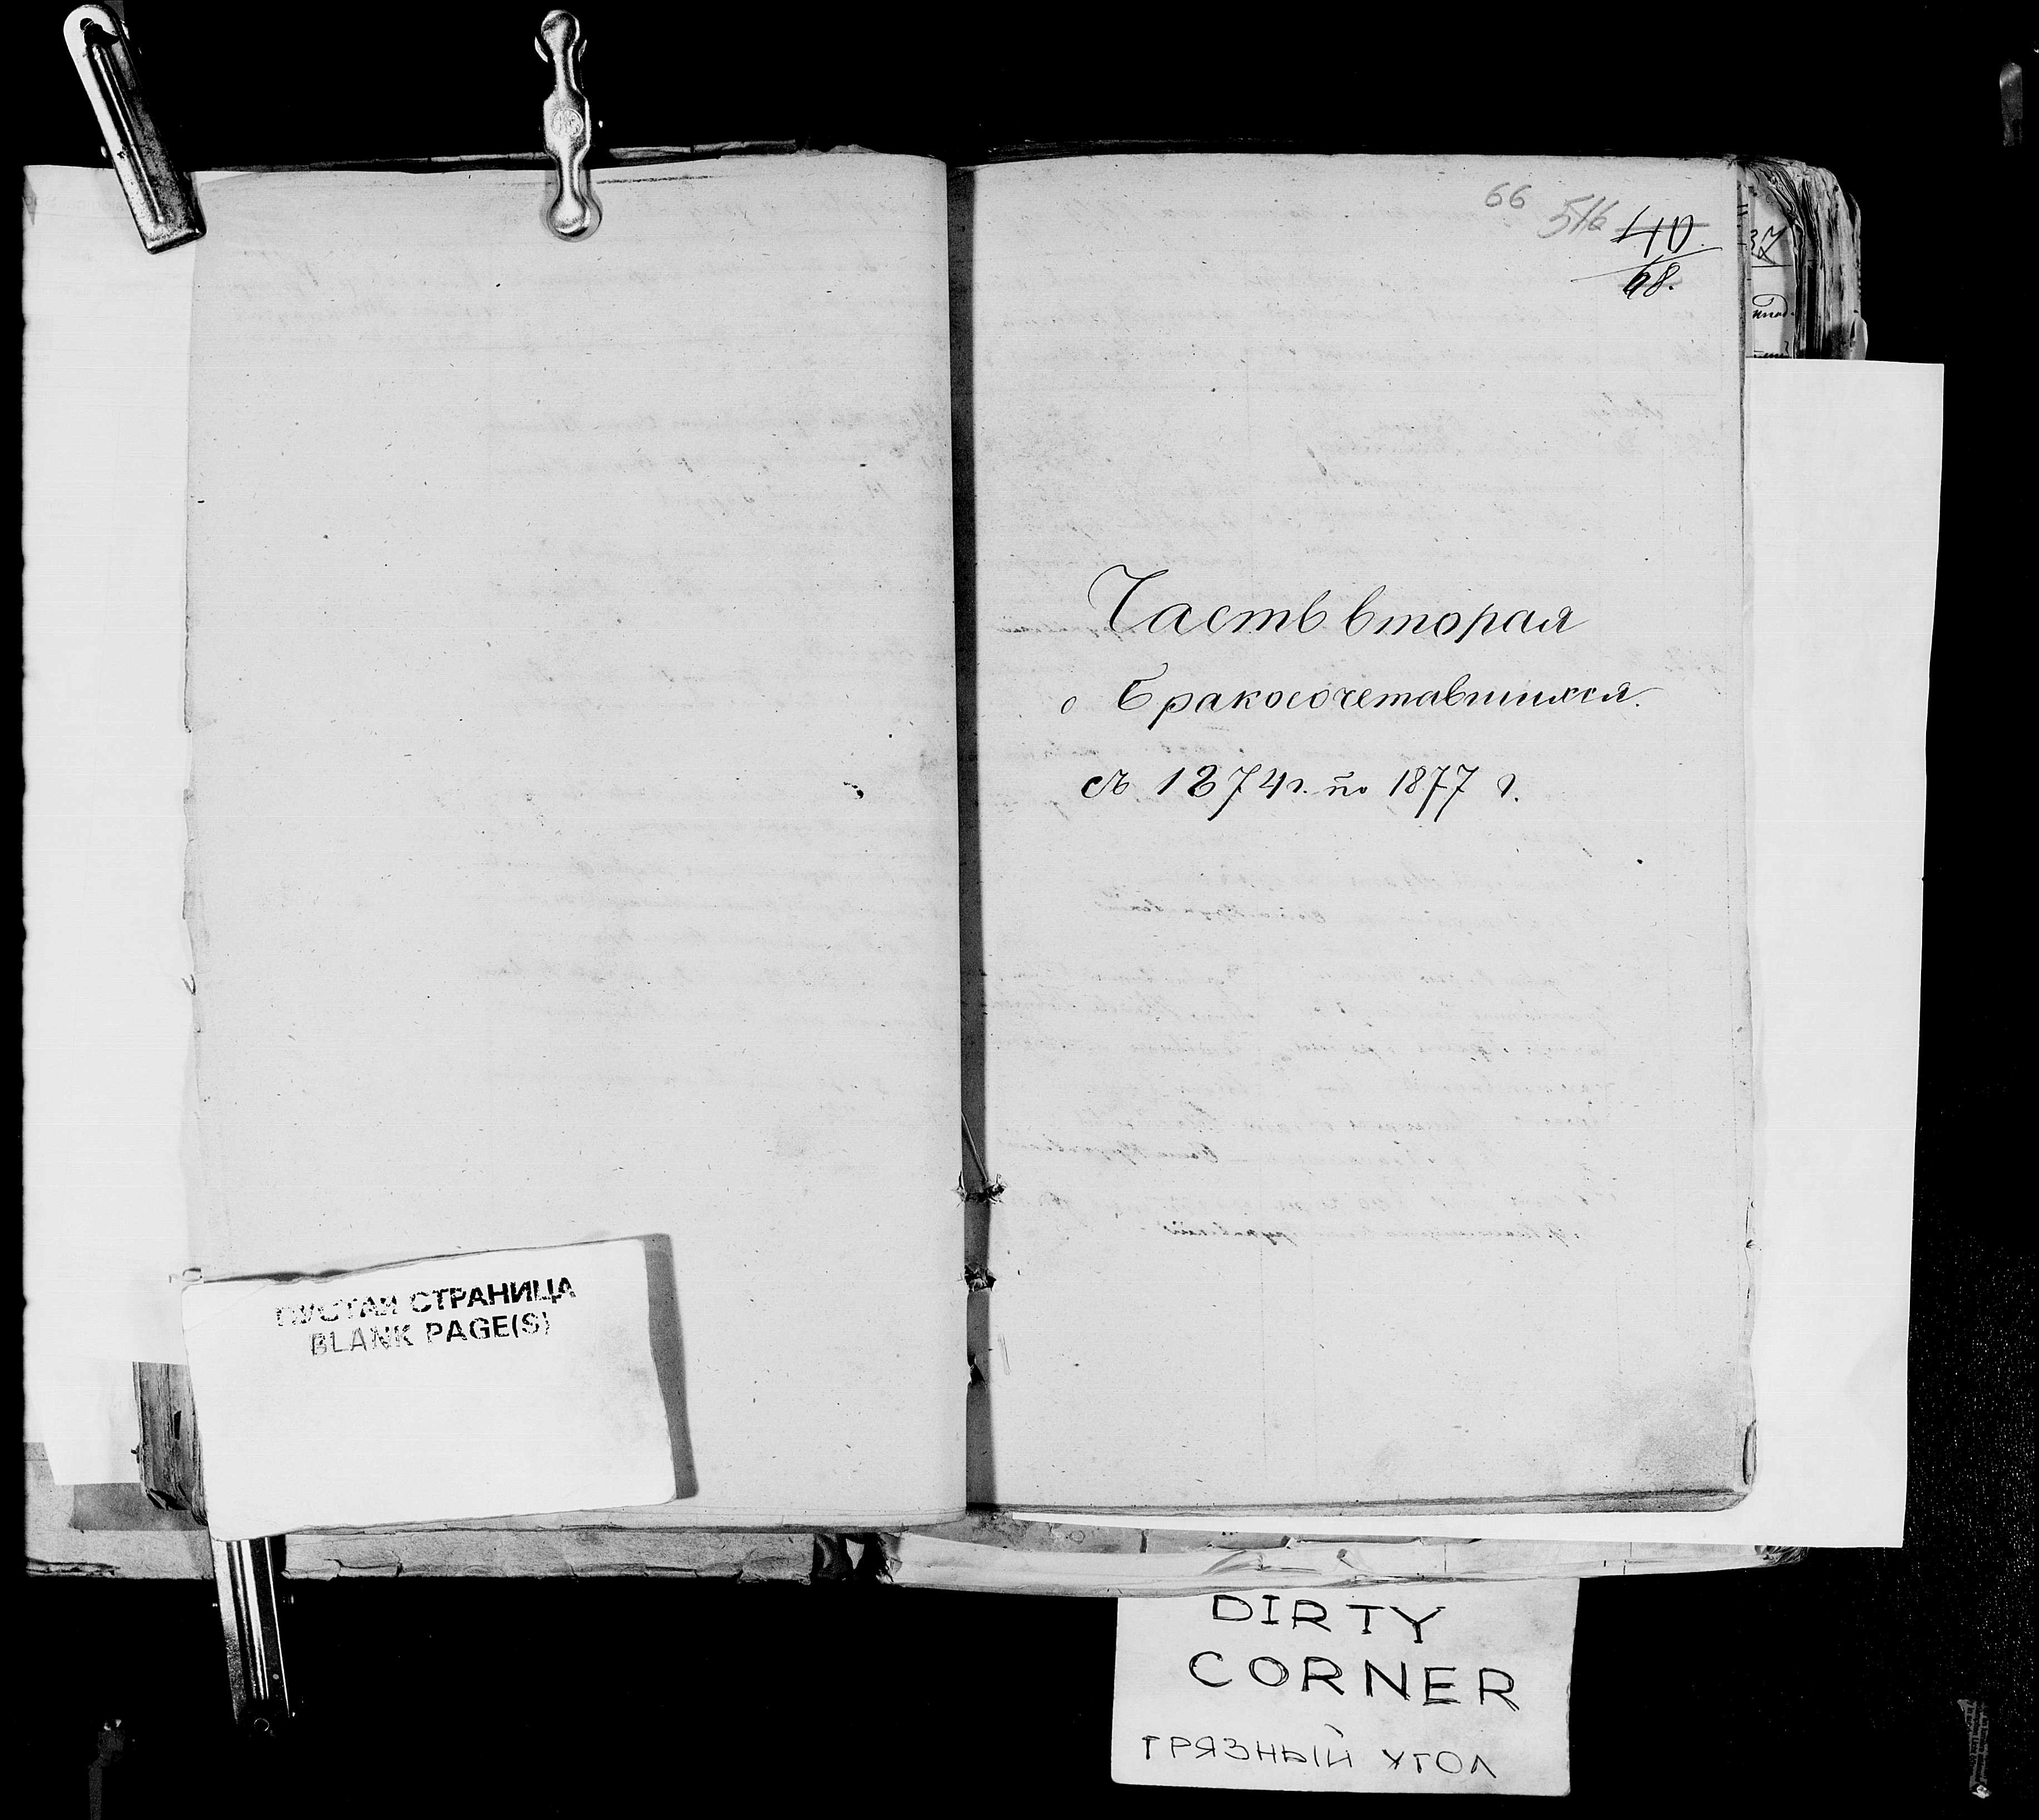 66 516 40.
68.
37
Часть вторая
о Бракосочетавшихся.
съ 1874 г. по 1877 г.
ПУСТАЯ СТРАНИЦА
BLANK PAGE(S)
DIRTY
CORNER
ГРЯЗНЫЙ УГОЛ